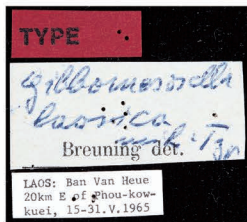 TYPE
Gibbomesosella
laosica
mihi Typ
Breuning dét.
LAOS: Ban Van Heue
20km E of Phou-kow-
kuei, 15-31.V.1965